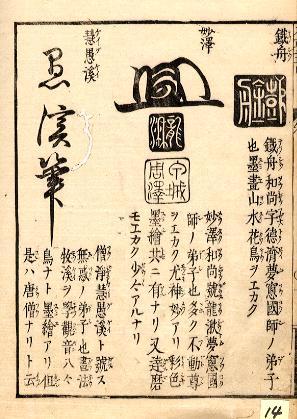 鐵舟
鐵舟和尚字德濟夢窓國師ノ弟子
也墨畫山水花鳥ヲエカク
妙澤
龍湫
周澤
妙澤和尚號龍湫夢窓國
師ノ弟子也多ク不動尊
ヲエカク尤神妙アリ彩色
墨繪共ニ有ナリ又達磨
モエカク少々アルナリ
慧愚溪
愚溪筆
僧淨慧愚溪ト號ス
無惑ノ弟子也畫法
牧溪ヲ學觀音八々
鳥ナト墨繪アリ但
是ハ唐僧ナリト云
14